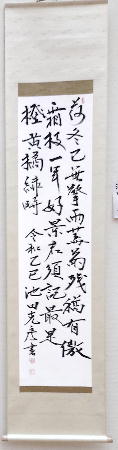 荷尽已無擎雨蓋菊残猶有傲
霜枝一年好景君須記最是
橙黄橘緑時 令和乙巳池田克彦書